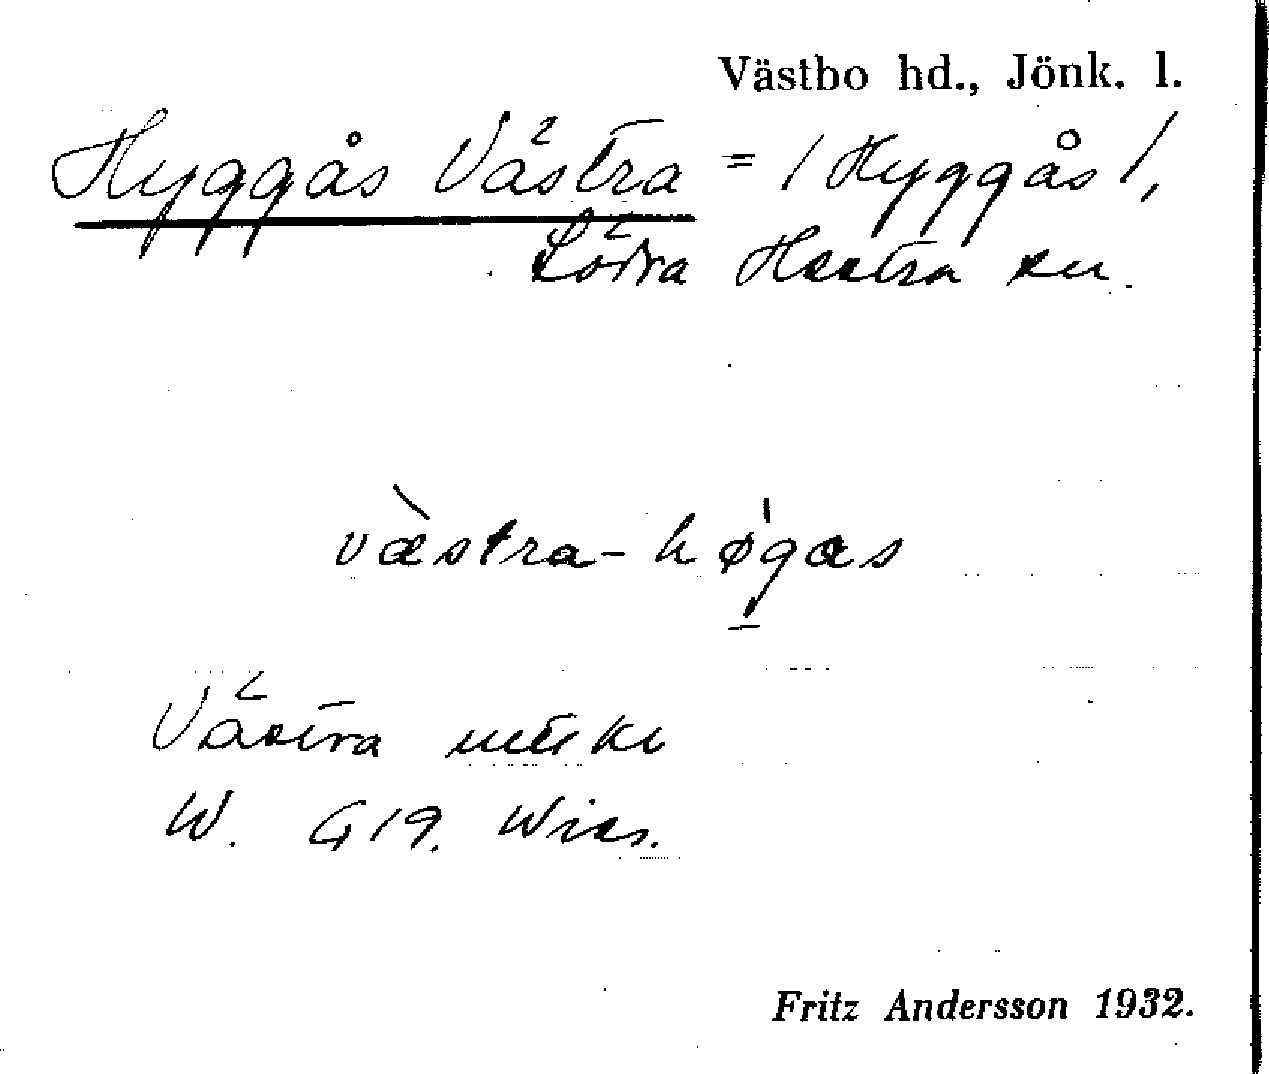 Västbo hd., Jönk. l.
Hyggås Västra = / Hyggås /,
Södra Hestra sn.
væ̀stra-hǿg̱as
Västra
W. G 19.
Fritz Andersson 1932.